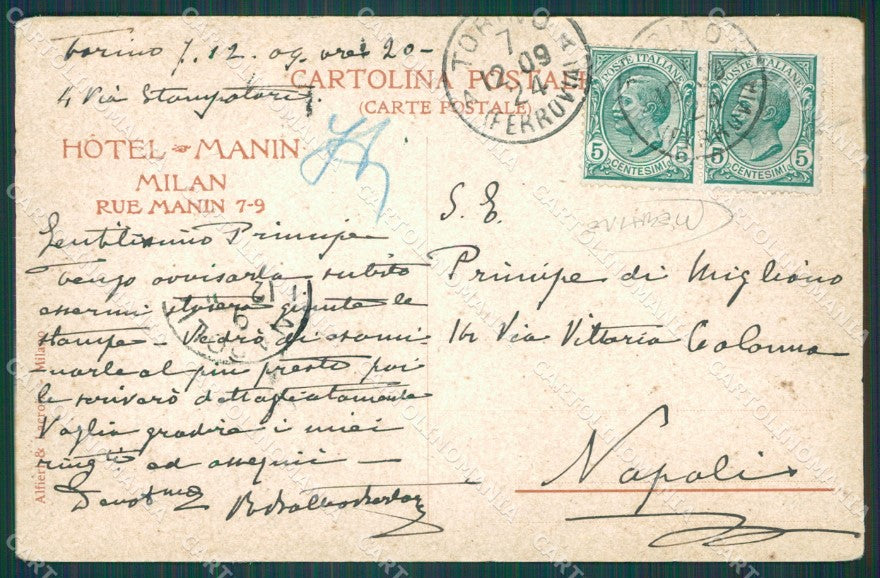 Torino 7.12.09 ore 20-
4 Via Stampatori.
CARTOLINA POSTALE
(CARTE POSTALE)
HÔTEL MANIN
MILAN
RUE MANIN 7-9
TORINO
7
12.09
24
(FERROVIA)
POSTE ITALIANE
5 CENTESIMI 5
POSTE ITALIANE
5 CENTESIMI 5
Gentilissimo Principe
Vengo avvisarla subito
essermi stasera giunte le
stampe - Vedrò di esami-
narle al più presto poi
le scriverò dettagliatamente
Voglia gradire i miei
ed ossequi -
Devotmo
S. E.
Principe di Migliano
16 Via Vittoria Colonna
Napoli
Alfieri & Lacroix Milano
CARTOLINOMANIA